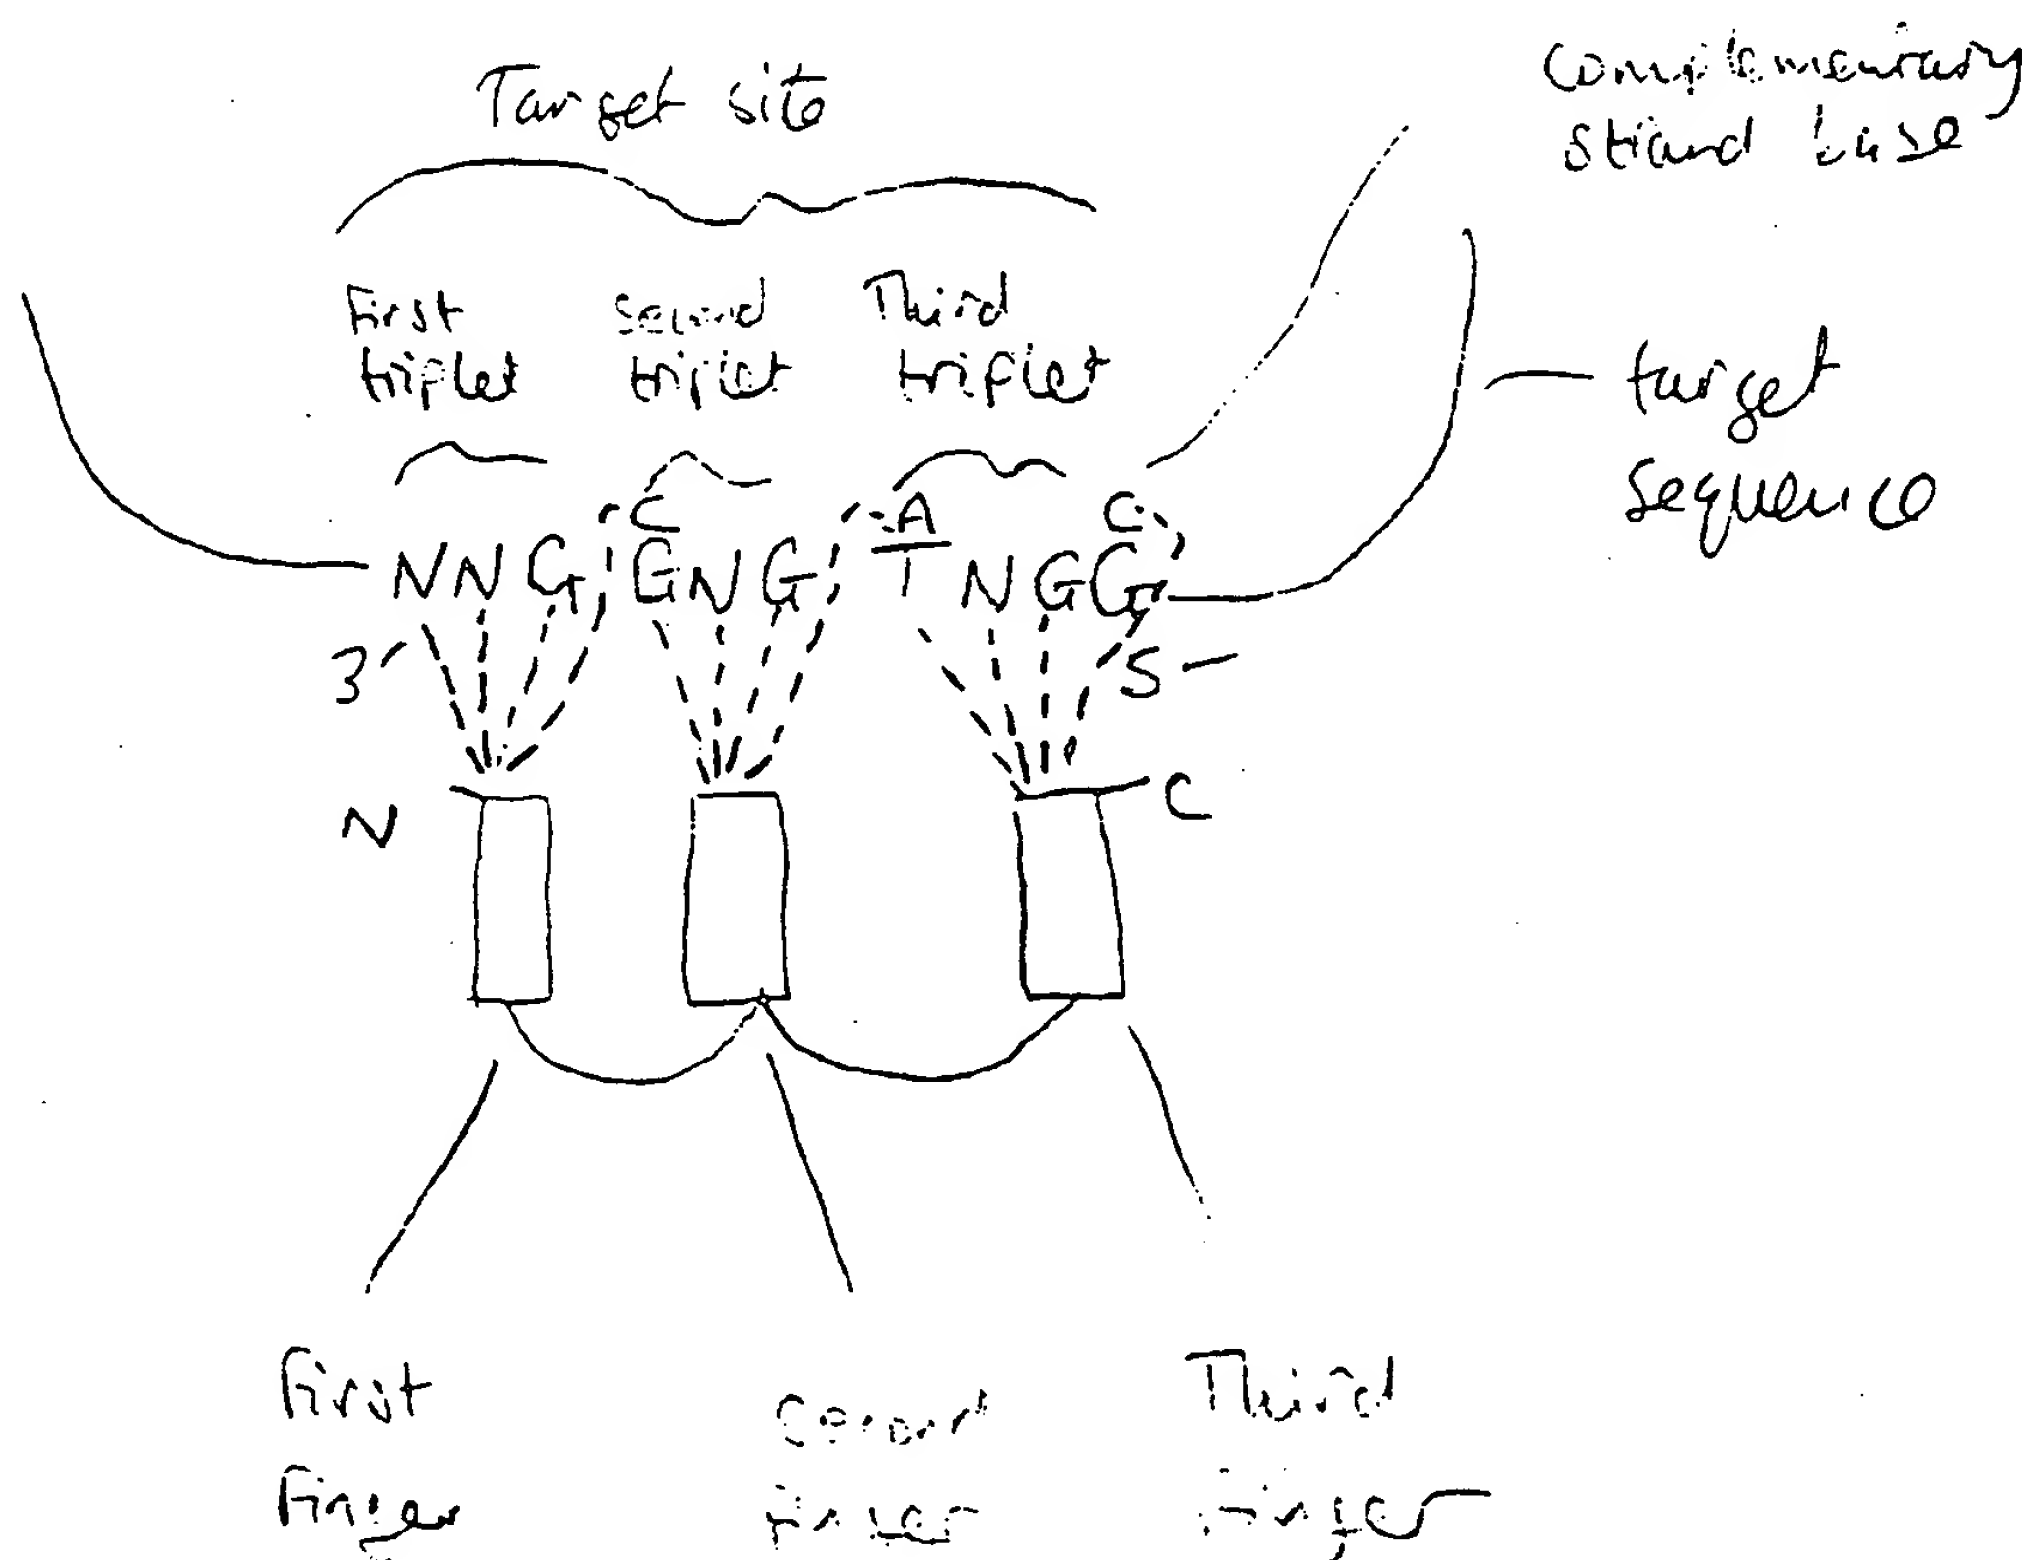 Target site
complementary
strand base
First
triplet
second
triplet
Third
triplet
target
sequence
C
A
C
N N G G N G T N G G
3'
5
N
C
First
Finger
Second
Finger
Third
Finger